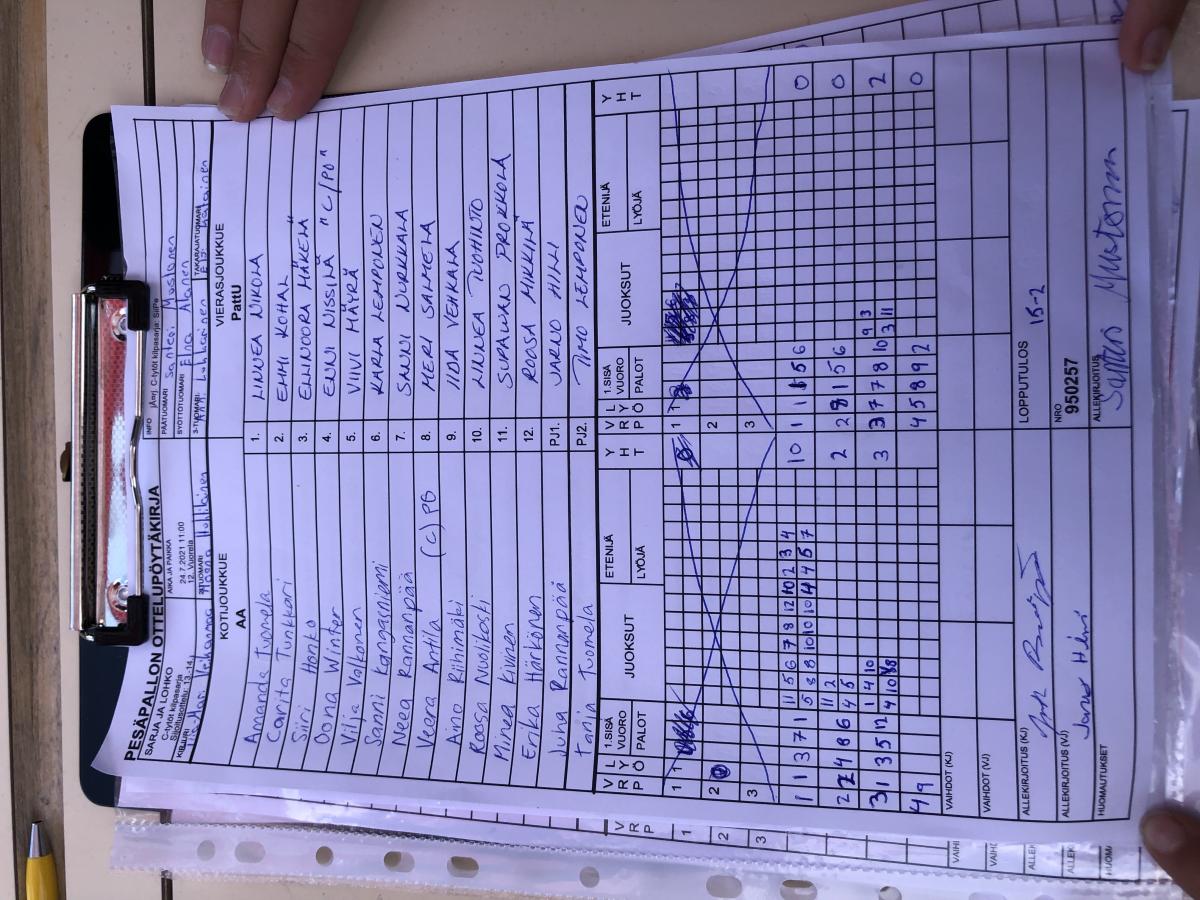 PESÄPALLON OTTELUPÖYTÄKIRJA
SARJA JA LOHKO
C-tytöt kilpasarja
Sijoitusottelu: 13.-14.
AIKA JA PAIKKA
24.7.2021 11:00
12. Vuorela
INFO jÄnj. C-tytöt kilpasarja: SiiPe
PÄÄTUOMARI Santeri Mustonen
SYÖTTÖTUOMARI Elina Alanen
KIRJURI
2-TUOMARI
3-TUOMARI
TAKARAJATUOMARI
KOTIJOUKKUE
AA
VIERASJOUKKUE
PattU
Amanda Tuomela 1. LINNEA NIKULA
Carita Tunkkari 2. EMMI KOHAL
Siiri Honko 3. ELLINOORA MÄKELÄ
Oona Winter 4. ENNI NISSILÄ "C/PO"
Vilja Valkonen 5. VIIVI MÄYRÄ
Sanni Kanganniemi 6. KARLA LEMPONEN
Neea Rannanpää 7. SANNI NURKKALA
Veera Anttila (C) PG 8. MERI SALMELA
Aino Riihimäki 9. IIDA VEHKALA
Roosa Nuolikoski 10. LINNEA TUOHINTO
Minea Kivinen 11. SUPALUKN PROKKOLA
Erika Härkönen 12. ROOSA MIKKILÄ
Juha Rannanpää PJ1. JARNO HILLI
Tanja Tuomela PJ2. TIMO LEMPONEN
V R P L Y Ö 1.SISÄ VUORO PALOT JUOKSUT ETENIJÄ LYÖJÄ Y H T V R P L Y Ö 1.SISÄ VUORO PALOT JUOKSUT ETENIJÄ LYÖJÄ Y H T
1 1 1 1
2 2
3 3
11 5 6 7 8 12 10 2 3 4
1 1 3 7 1 5 8 8 10 10 10 4 4 5 7 10 1 1 5 6 0
11 2
2 4 8 6 4 5 2 2 8 1 5 6 0
1 4 10 9 3
3 1 3 5 12 4 10 8 3 3 7 7 8 10 3 11 2
4 9 4 5 8 9 2 0
VAIHDOT (KJ)
VAIHDOT (VJ)
ALLEKIRJOITUS (KJ)
LOPPUTULOS 15-2
ALLEKIRJOITUS (VJ)
NRO
950257
HUOMAUTUKSET
ALLEKIRJOITUS
V R P
1
2
3